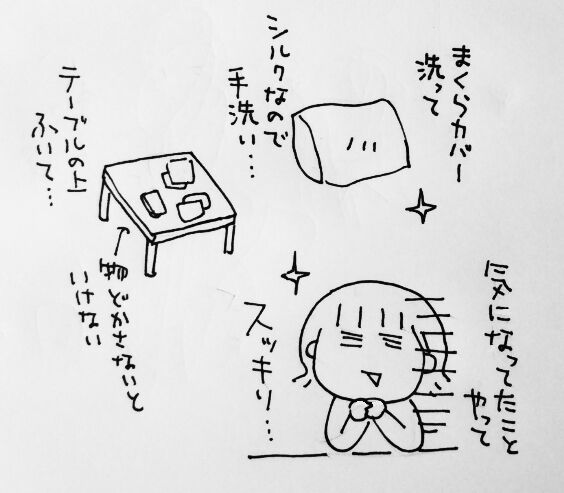 まくらカバー
洗って
シルクなので
手洗い…
テーブルの上
ふいて…
物どかさないと
いけない
気になってたこと
やって
スッキリ…